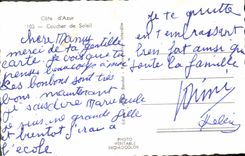 Côte d'Azur
103 - Coucher de Soleil
Chère Mamy
merci de ta gentille
carte. je vois que tu
penses beaucoup à moi
Les bonbons sont très
bons maintenant
je suis une grande fille
et bientôt j'irai à
l'école
je te quitte
en t'embrassant
bien fort ainsi que
toute la famille
PHOTO
VERITABLE